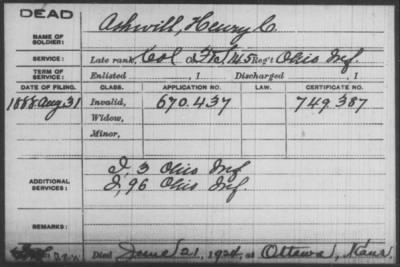 DEAD
NAME OF SOLDIER: Ashwill, Henry C.
SERVICE: Late rank, Col F&S, 145 Reg't Ohio Inf.
TERM OF SERVICE: Enlisted , 1 Discharged , 1
DATE OF FILING. CLASS. APPLICATION NO. LAW. CERTIFICATE NO.
1888 Aug 31 Invalid, 670.437 749.387
Widow,
Minor,
ADDITIONAL SERVICES: I, 3 Ohio Inf
I, 96 Ohio Inf.
REMARKS:
Died June 21, 1924, at Ottawa, Kans